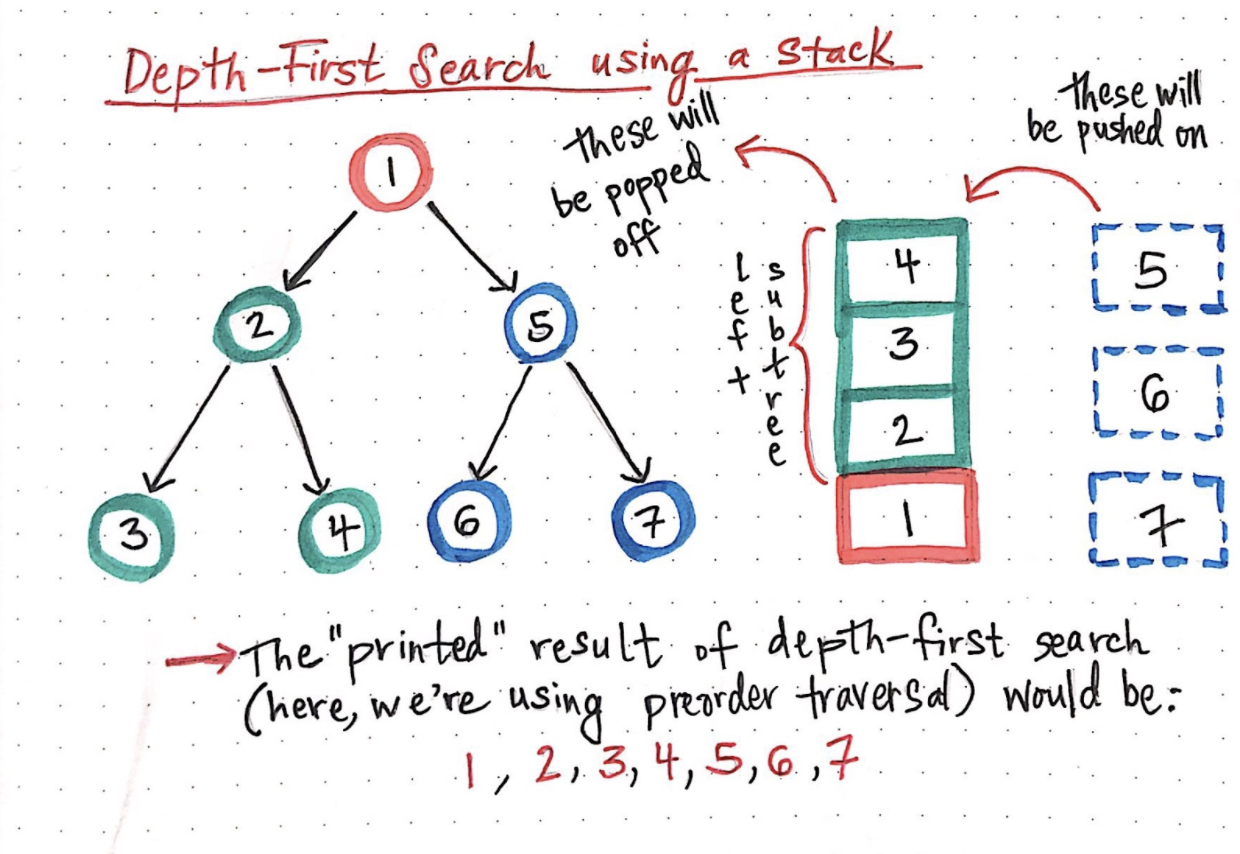 Depth-First Search using a Stack
these will
be popped
off
these will
be pushed on
1
2
5
3
4
6
7
left
subtree
4
3
2
1
5
6
7
The "printed" result of depth-first search
(here, we're using preorder traversal) would be:
1, 2, 3, 4, 5, 6, 7